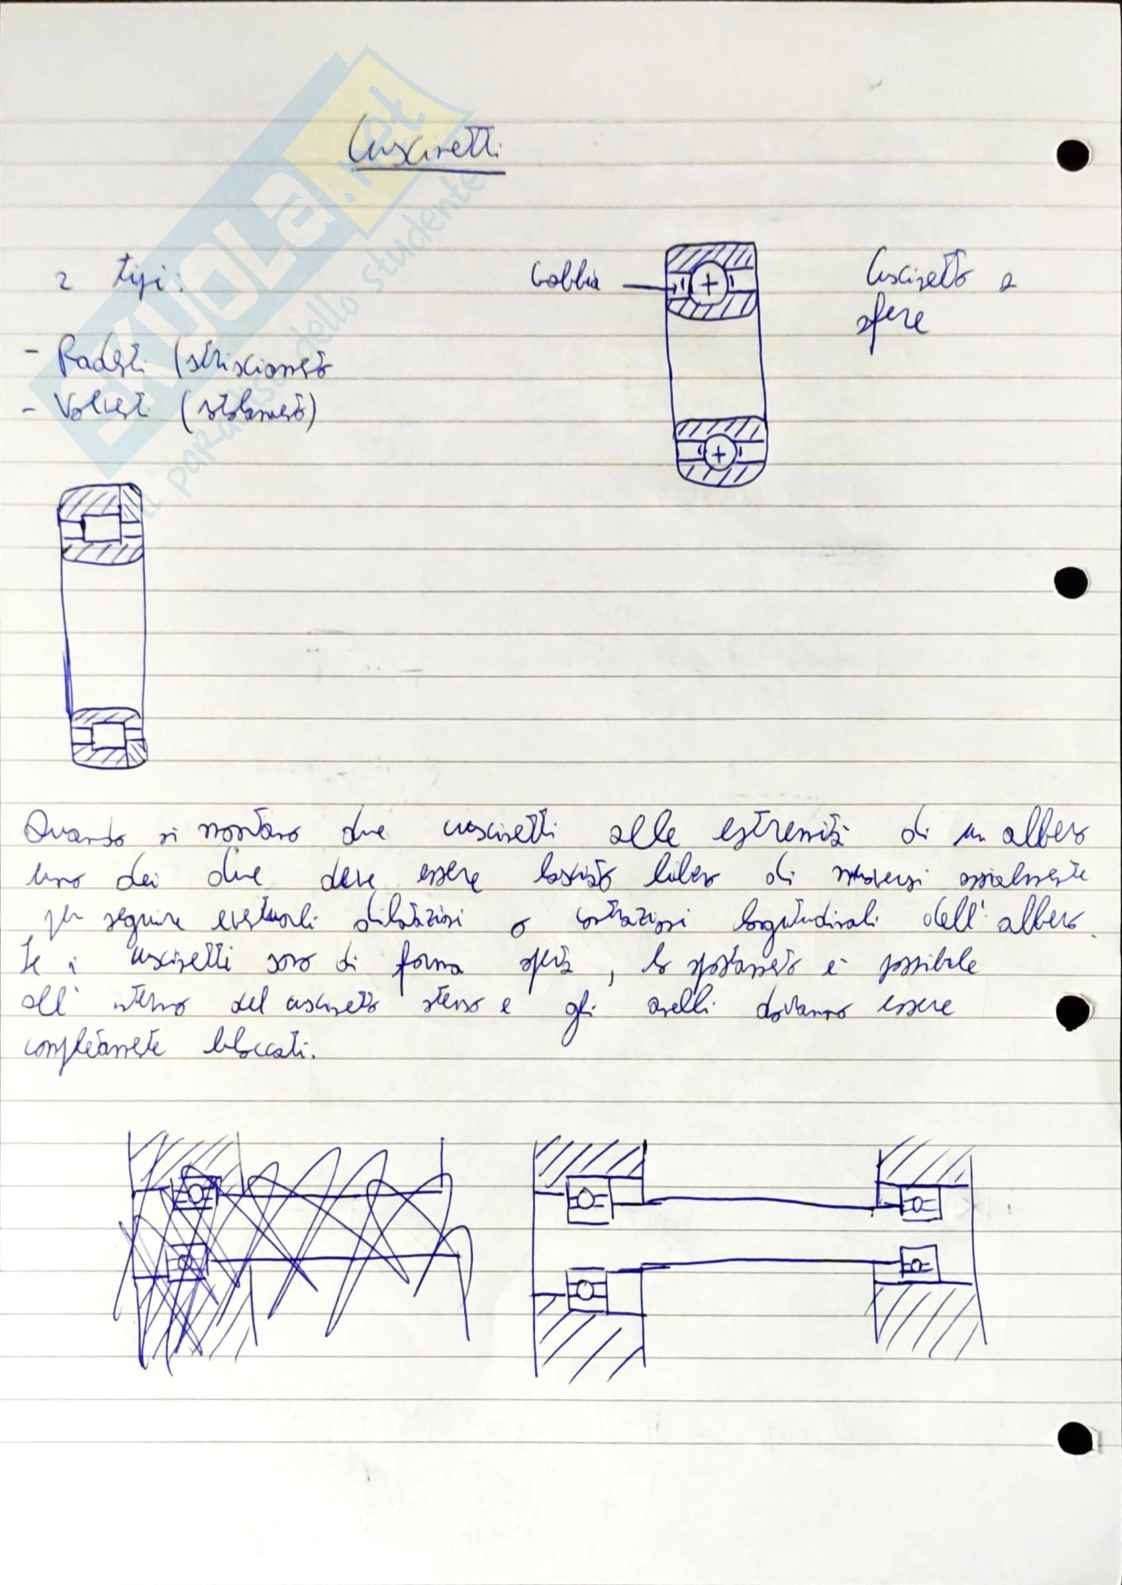 Cuscinetti
2 tipi:
- Radenti (strisciamento
- Volventi (rotolamento)
Gabbia
Cuscinetto a
sfere
Quando si montano due cuscinetti alle estremità di un albero
uno dei due deve essere lasciato libero di muoversi assialmente
per seguire eventuali dilatazioni o contrazioni longitudinali dell'albero.
Se i cuscinetti sono di forma aperta, lo spostamento è possibile
all'interno del cuscinetto stesso e gli anelli dovranno essere
completamente bloccati.
SKUOLA.net
il paradiso dello studente